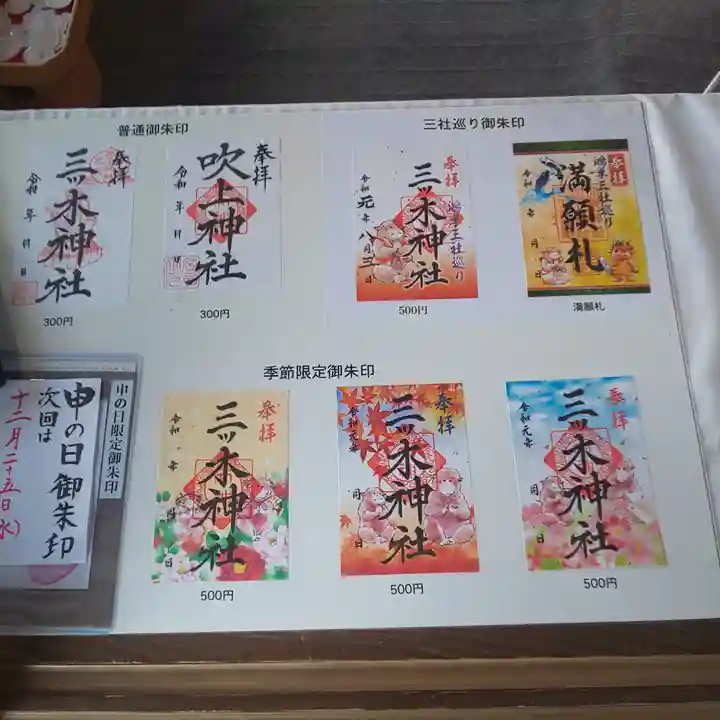 普通御朱印
三社巡り御朱印
奉拝
三ッ木神社
令和 年 月 日
300円
奉拝
吹上神社
令和 年 月 日
300円
奉拝
鴻巣三社巡り
三ッ木神社
令和元年八月三日
500円
奉拝
鴻巣三社巡り
満願札
令和 年 月 日
満願札
季節限定御朱印
申の日限定御朱印
申の日御朱印
次回は
十二月二十五日(水)
奉拝
三ッ木神社
令和 年 月 日
500円
奉拝
三ッ木神社
令和元年 月 日
500円
奉拝
三ッ木神社
令和元年 月 日
500円